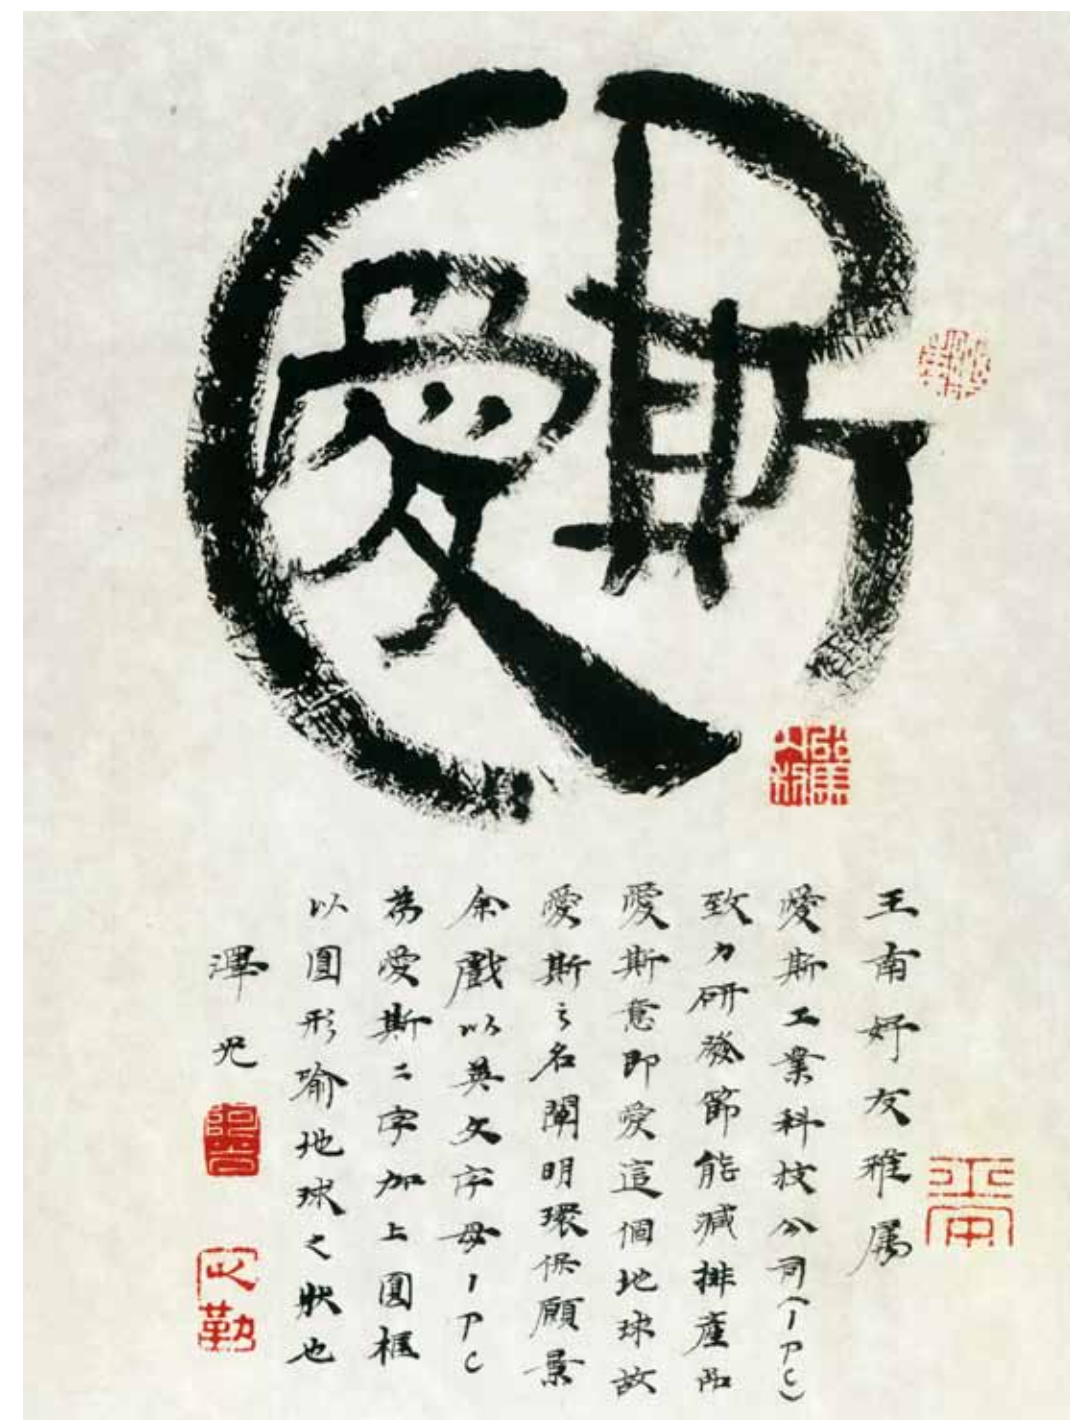 愛斯
王南好友雅属
愛斯工業科技公司(IPC)
致力研發節能減排產品
愛斯意即愛這個地球故
愛斯之名闡明環保願景
余戲以英文字母IPC
為愛斯二字加上圓框
以圓形瑜地球之狀也
澤